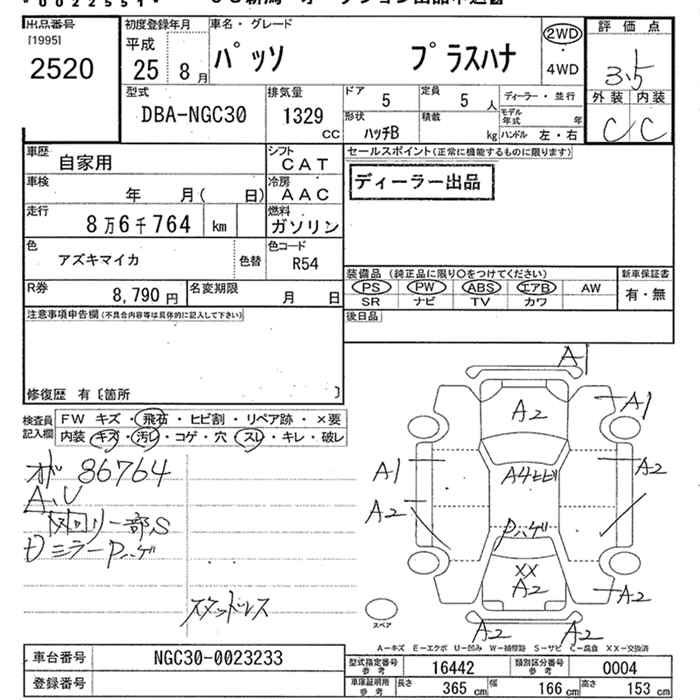 * 0022551 *
出品番号 初度登録年月 車名・グレード 評価点
[1995] 平成
2520 25 8月 パッソ プラスハナ 2WD・4WD 3.5
外装 内装
C C
型式 排気量 ドア 定員 ディーラー・並行
DBA-NGC30 1329 CC 5 5 人
形状 積載 モデル年式 年
ハッチB kg ハンドル 左・右
車歴 シフト セールスポイント(正常に機能するものに限ります)
自家用 CAT
車検 冷房 ディーラー出品
年 月( 日) AAC
走行 燃料
8万6千764 km ガソリン
色 色コード
アズキマイカ 色替 R54
装備品 (純正品に限り○をつけてください) 新車保証書
R券 名変期限 PS PW ABS エアB AW 有・無
8,790円 月 日 SR ナビ TV カワ
注意事項申告欄(不具合内容等は具体的に記入して下さい) 後日品
修復歴 有〔箇所 〕
検査員記入欄 FW キズ・飛石・ヒビ割・リペア跡・×要
内装 キズ・汚れ・コゲ・穴・スレ・キレ・破レ
86764
A、U
一部S
ミラーPハゲ
スタッドレス
A1
A2 A1
A1 A4ヒビ A2
A2 Pハゲ
XX
A2 A2
A2 A2
スペア
A-キズ E-エクボ U-凹み W-補修跡 S-サビ C-腐食 XX-交換済
車台番号 NGC30-0023233 型式指定番号 参考 16442 類別区分番号 参考 0004
登録番号 車庫証明用 参考 長さ 365 cm 幅 166 cm 高さ 153 cm